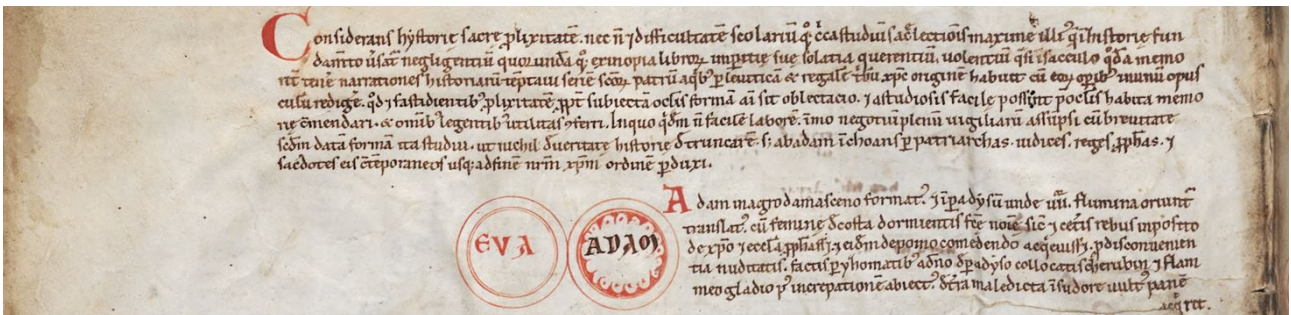 Considerans hystorie sacre ꝓlixitatē. nec ñ ⁊ difficultatē scolariū qͦꝫ c̄ca studiū sac̄ lectiōis maxime illiꝰ q̄ ī historie fun
damēto ūsat̄ negligentiū quorundā qͦꝫ ex inopia libroꝝ imp̄itie sue solatia querentiū. uolentiū q̄si ī sacculo q̄dā memo
rit̄ tene᷑ narrationes historiarū tēptaui seriē scōꝝ patrū a qͥbꝰ ꝑ leuiticā & regalē tbū xp̄c originē habuit cū eoꝝ oꝑibꝰ ī unū opus
culū redige᷑. qͦd ⁊ fastidientibꝰ ꝓlixitatē ꝓpt̄ subiectā oc̄lis formā aī sit oblectacio. ⁊ a studiosis facile possint p̄ oc̄lis habita memo
rie c̄mendari. & omībꝰ legentibꝰ utilitas ꝯferri. In quo q̄dm̄ ñ facilē laborē. īmo negotiū plenū uigiliarū assūpsi cū breuitate
sc̄dm datā formā ita studui. ut nichil d̄ ueritate historie d̄truncarē. s; ab adam īchoans ꝑ patriarchas. iudices. reges. ꝓphas. ⁊
sac̄dotes eis c̄tēporaneos usqꝫ ad finē nr̄m xp̄m ordinē ꝑduxi.
EVA
ADAM
Adam in agro damasceno formatꝰ. ⁊ ī paradysū unde iiii. flumina oriunt̄
translatꝰ. cū femine d̄ costa dormientis fc̄e nom̄. sic ⁊ cet̄is rebus inposito
de xp̄o ⁊ ecc̄la ꝓphassꝫ. ⁊ eid̄m de pomo comedendo acq̄euissꝫ. p̄ disconuenien
tia nuditatis. factis ꝑyzomatibꝰ a dn̄o d̄ paradyso collocatis cherubin ⁊ flam
meo gladio pꝰ increpationē abiectꝰ. d̄ t̄ra maledicta ī sudore uultꝰ panē
acq̄rit.